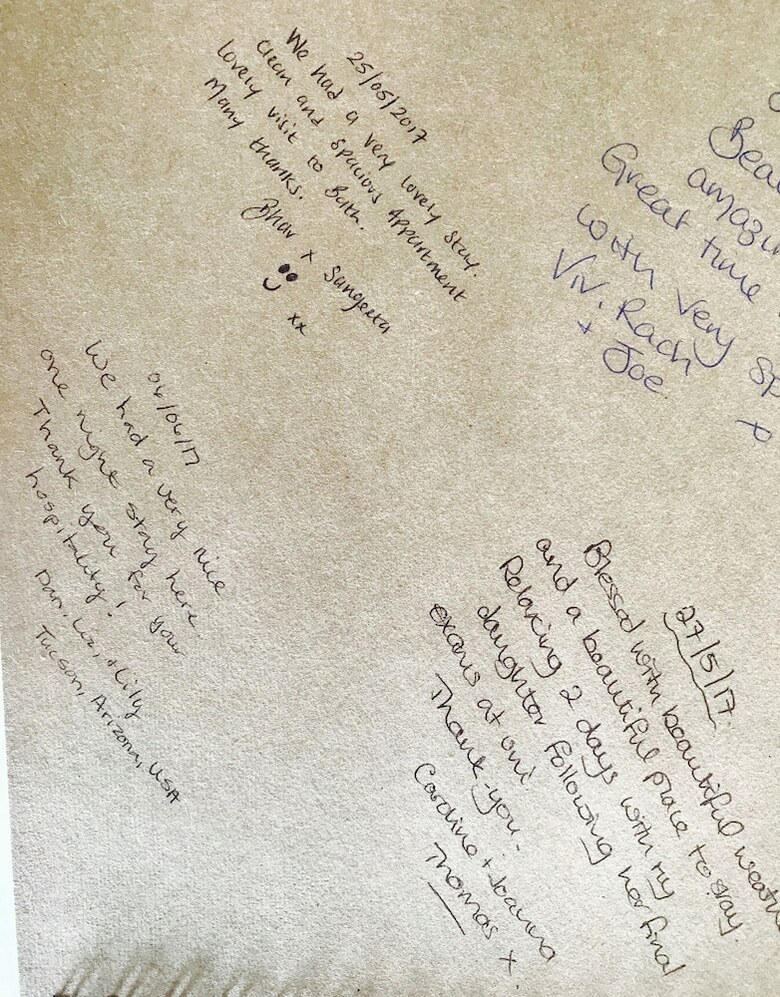 25/05/2017
We had a very lovely stay.
Clean and spacious Appartment
lovely visit to Bath.
Many thanks.
Bhav x Sangeeta
xx
amazin
Great time
with very sp
Viv, Rach
+ Joe
x
04/06/17
We had a very nice
one night stay here.
Thank you for your
hospitality!
Dan, Liz, + Lily
Tucson, Arizona, USA
27/5/17.
Blessed with beautiful weath
and a beautiful place to stay.
Relaxing 2 days with my
daughter following her final
exams at uni
Thank-you.
Caroline + Joanna
Thomas x